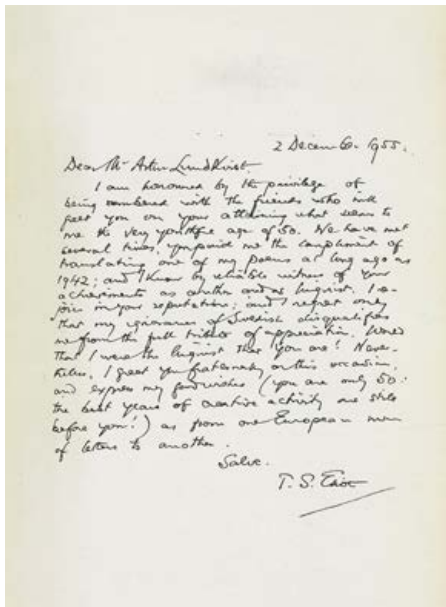 2 December 1955.
Dear Mr Artur Lundkvist,
I am honoured by the privilege of
being numbered with the friends who will
greet you on your attaining what seems to
me the very youthful age of 50. We have met
several times, you paid me the compliment of
translating one of my poems as long ago as
1942; and I know by reliable witness of your
achievements as author and as linguist. I re-
joice in your reputation; and I regret only
that my ignorance of Swedish disqualifies
me from the full tribute of appreciation. Would
that I were the linguist that you are! Never-
theless, I greet you fraternally on this occasion,
and express my good wishes (you are only 50:
the best years of creative activity are still
before you!) as from one European man
of letters to another.
Salve.
T. S. Eliot